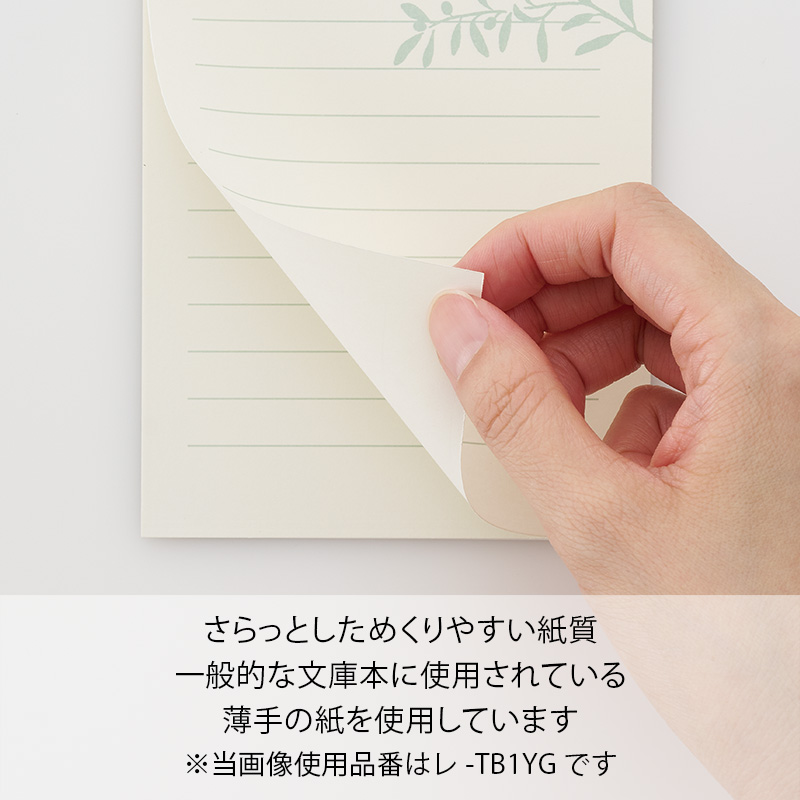 さらっとしためくりやすい紙質
一般的な文庫本に使用されている
薄手の紙を使用しています
※当画像使用品番はレ -TB1YG です